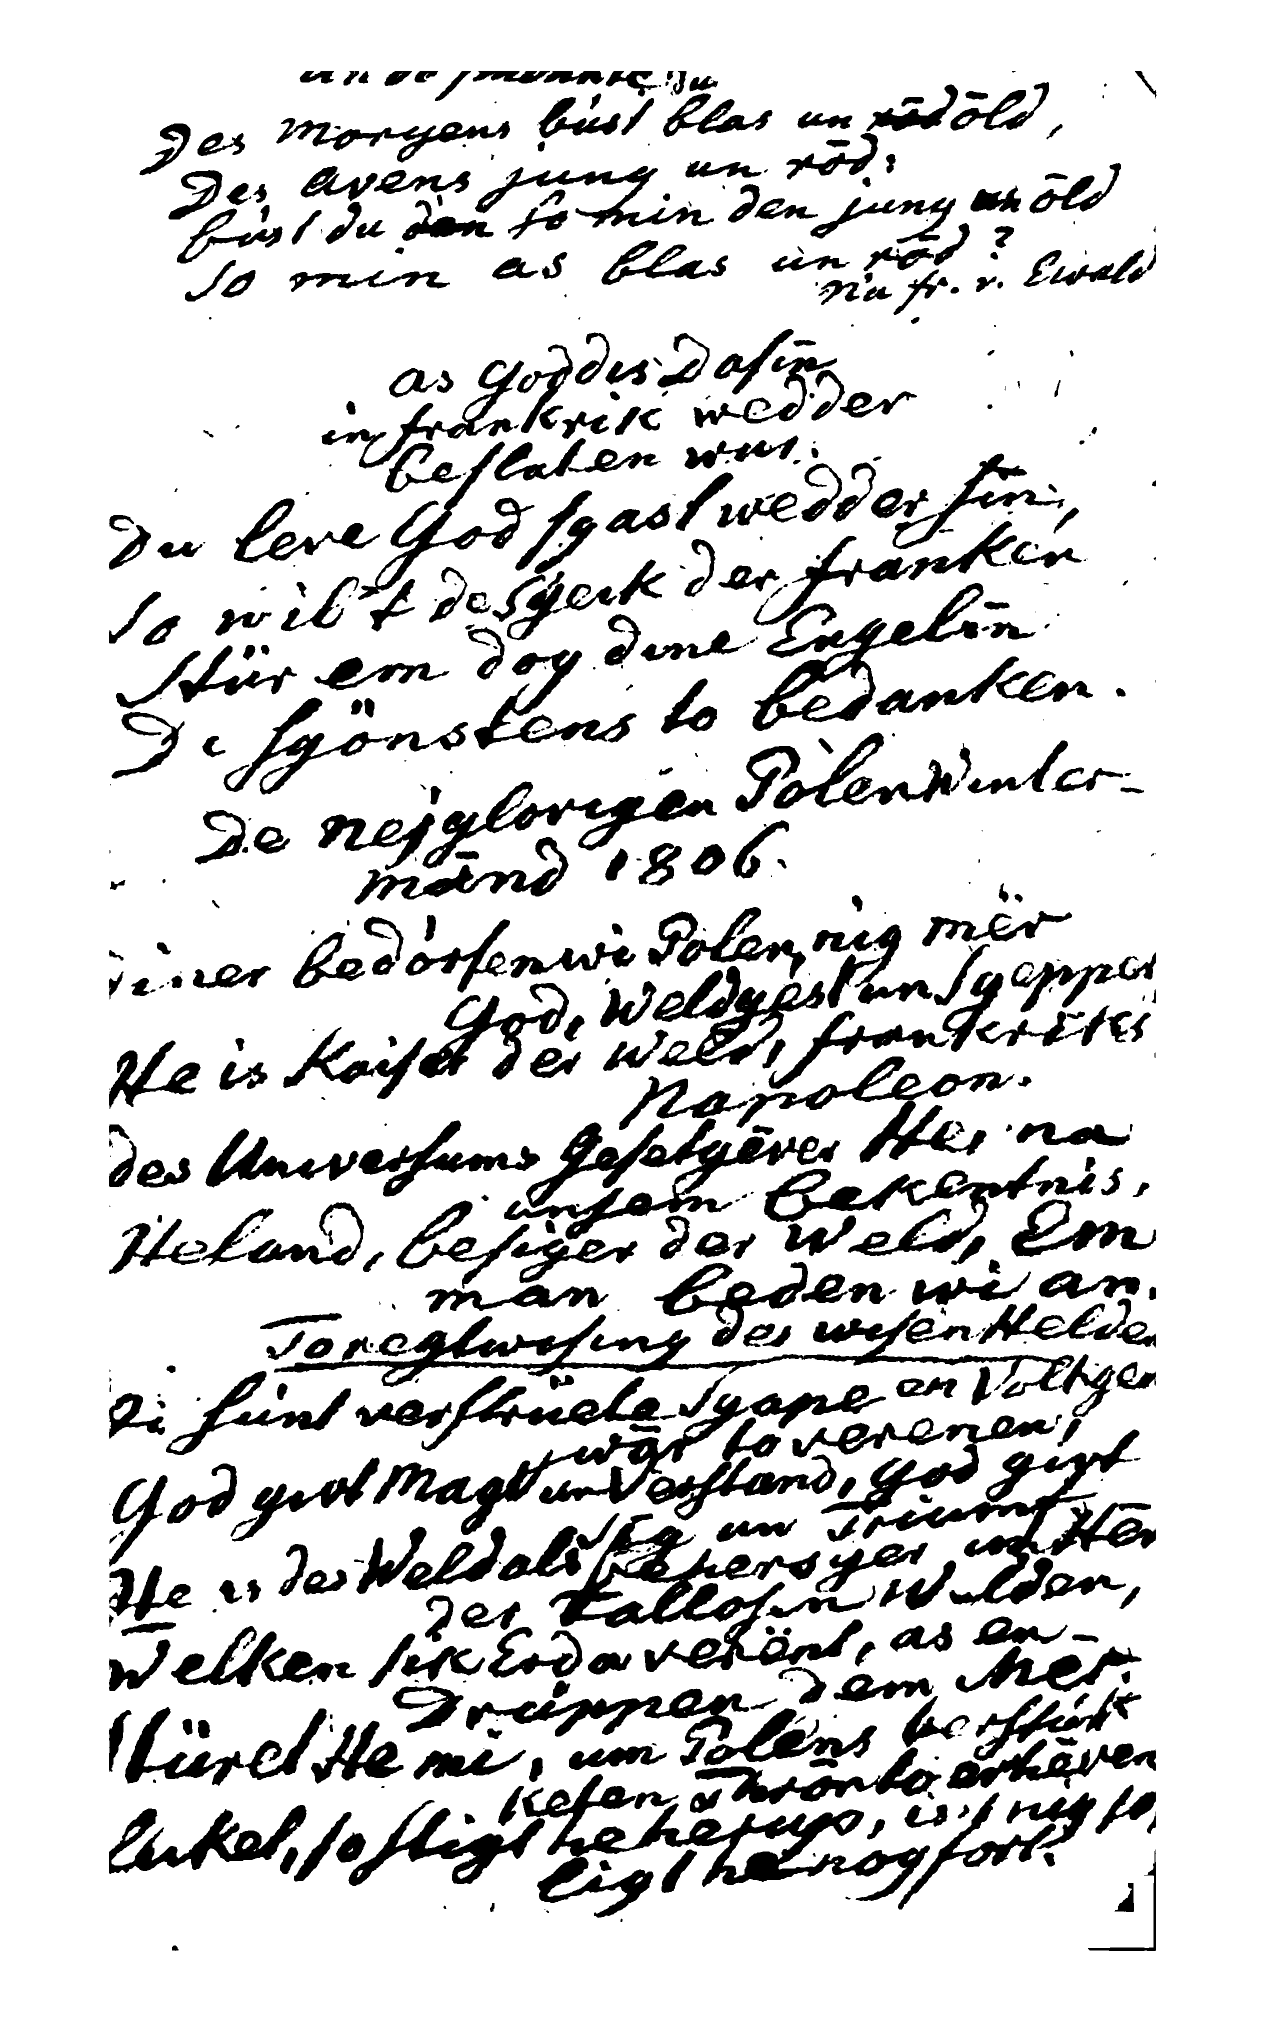 Des Morgens büst blas un ōld,
Des Avens jung un rōd:
büst du den so min den jung un ōld
So min as blas un rōd?
Na fr. v. Ewald
as Goddis Dasin
in frankrik wedder
beslaten wur.
Du leve God sgast wedder sin,
So wil't de Sgeik der franken
Stür em dog dine Engelin
Di sgönstens to bedanken.
De nejglorigen Polen Winter-
mānd 1806.
diner bedörfen wi Polen, nig mër
God, Weldgest un Sgepper,
He is Kaiser der Weld, frankrīks
Napoleon.
des Universums Gesetgēver He, na
unsem bekentnis,
Heland, besiger der Weld, Em
man beden wi an.
Toregtwising des wisen Helden
Di sünt verströete Sgape en Völkgen
wār to verenen,
God givt Magt un Verstand, God givt
Sēg un Triumf
He is des Weldals behersger un Hēr
der Tallosen Wulden,
Welken sik Erda verënt, as en
Drüppen dem Mēr.
Stüret He mi, um Polens
Thrōn to erhēven
Lukket, so stigt he herup, is't nig so,
ligt he nog fort.